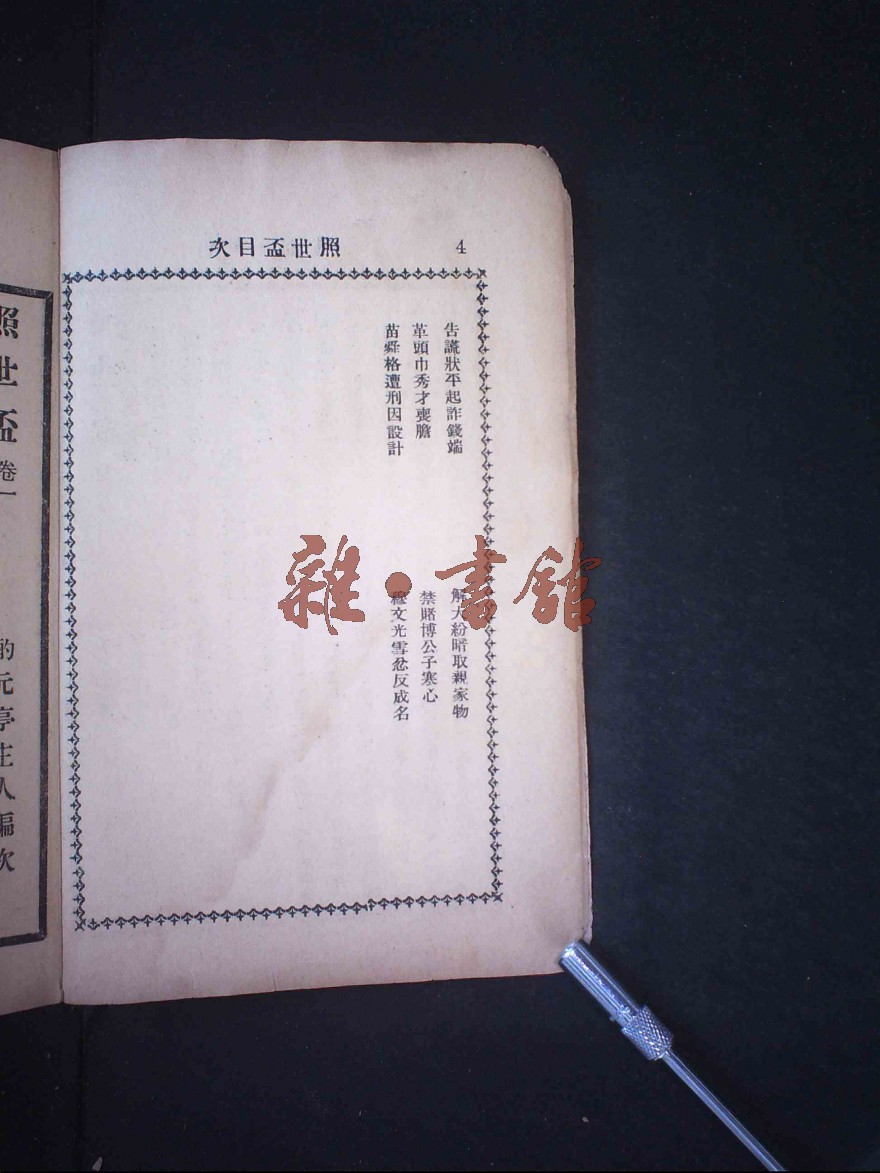 照世盃目次
4
告謊狀平起詐錢端
解大紛暗取親家物
革頭巾秀才喪膽
禁賭博公子寒心
苗舜格遭刑因設計
穆文光雪忿反成名
雜·書館
照世盃卷一
酌元亭主人編次